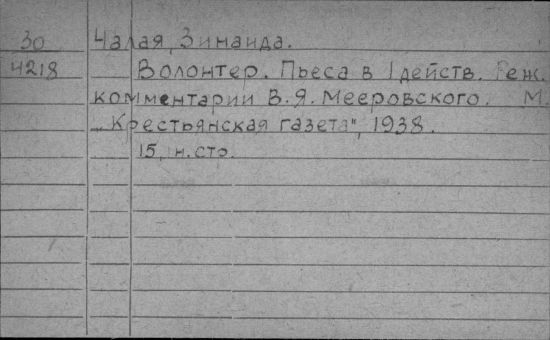 30 Чалая, Зинаида.
4218 Волонтер. Пьеса в 1 действ. Реж.
комментарии В.Я. Мееровского. М.
„Крестьянская газета", 1938.
15, н.стр.